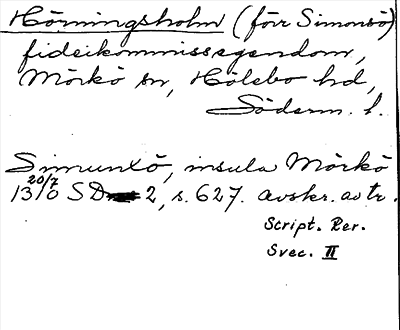 Hörningsholm (förr Simonsö)
fideikommissegendom,
Mörkö sn, Hölebo hd,
Söderm. l.
Simunxö, insula Mörkö
1310 20/7 SD 2, s. 627. avskr. av tr.
Script. Rer.
Svec. II